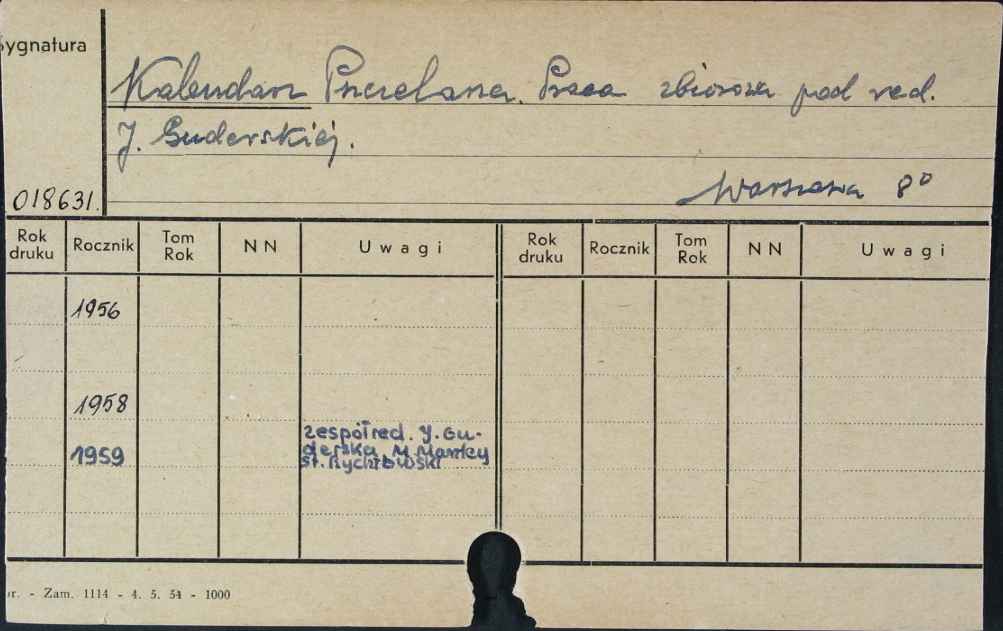 Sygnatura
Kalendarz Pszczelarza. Praca zbiorowa pod red.
J. Guderskiej.
018631.
Warszawa 8°
Rok druku Rocznik Tom Rok NN Uwagi Rok druku Rocznik Tom Rok NN Uwagi
1956
1958
1959 zespół red. J. Gu-
derska M.
St.
r. - Zam. 1114 - 4. 5. 54 - 1000